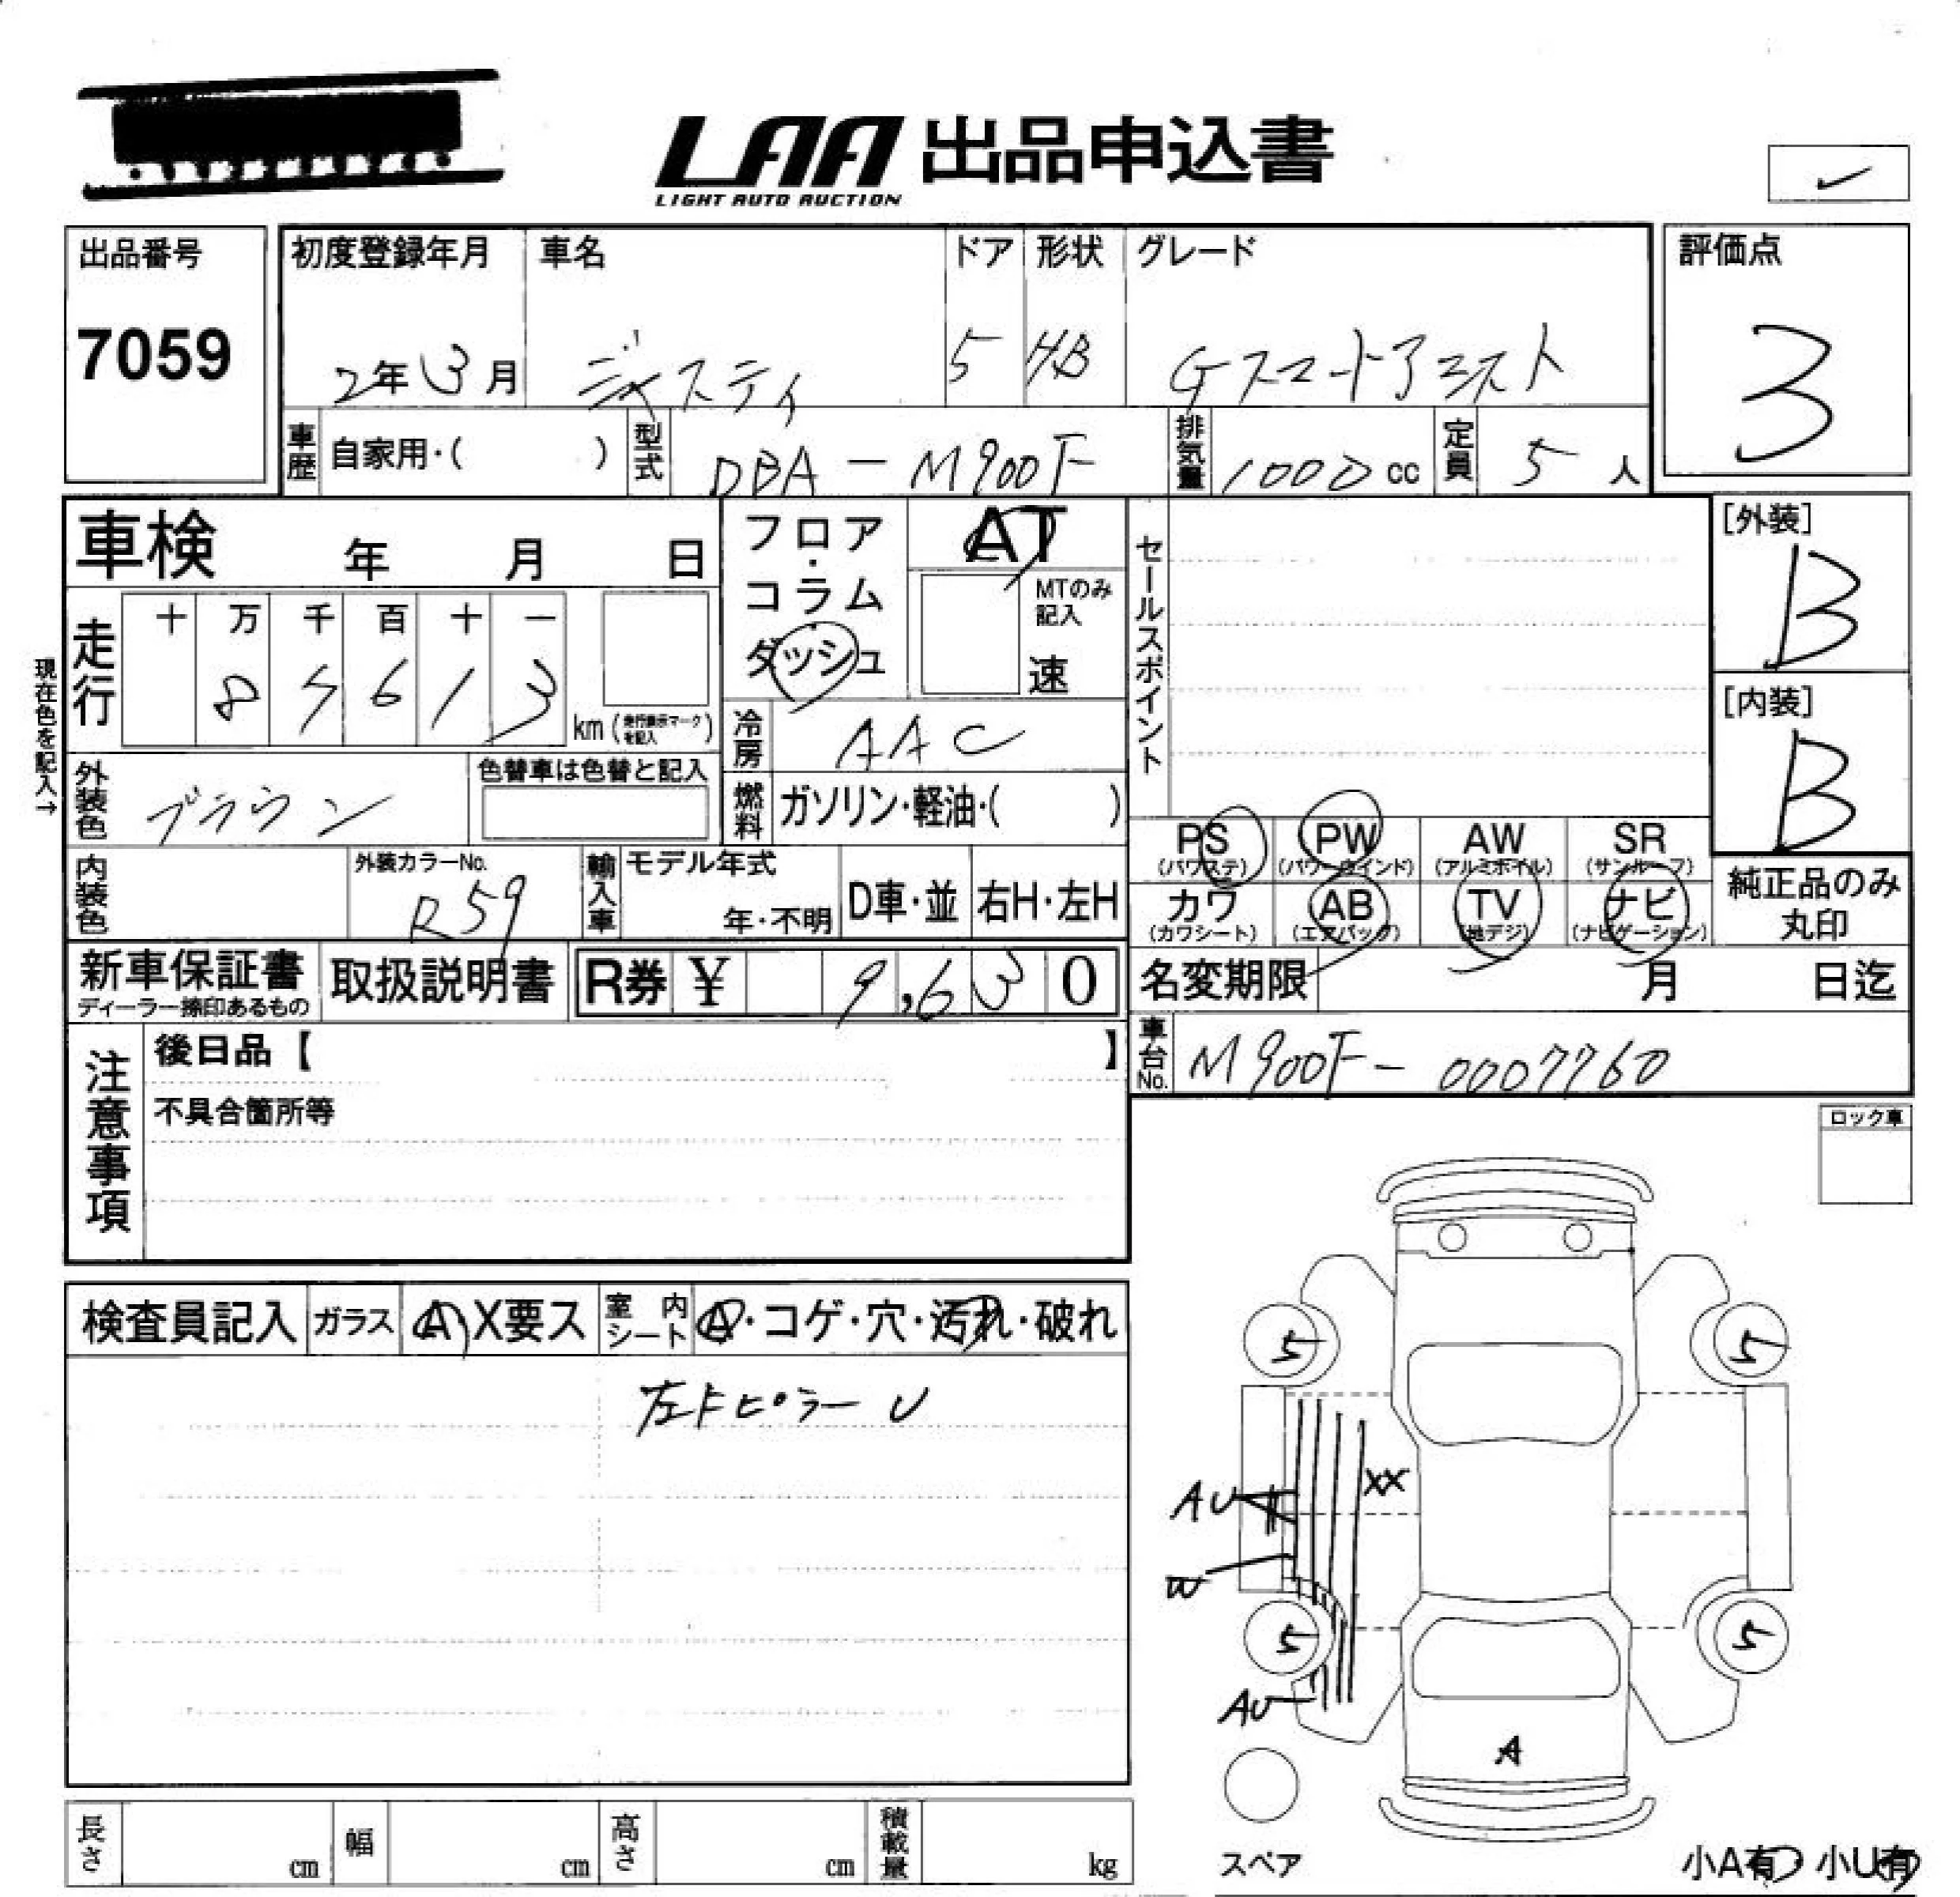 LAA 出品申込書
LIGHT AUTO AUCTION
出品番号
7059
初度登録年月
2年 3月
車名
ジャスティ
ドア
5
形状
HB
グレード
Gスマートアシスト
評価点
3
車歴
自家用・( )
型式
DBA-M900F
排気量
1000 cc
定員
5 人
車検 年 月 日
フロア・コラム
ダッシュ
AT
MTのみ
記入
速
セールスポイント
[外装]
B
[内装]
B
現在色を記入→
走行
十 万 千 百 十 一
8 6 1 3
km (走行表示マークを記入)
冷房
AAC
外装色
ブラウン
色替車は色替と記入
燃料
ガソリン・軽油・( )
PS
(パワステ)
PW
(パワーウインド)
AW
(アルミホイル)
SR
(サンルーフ)
カワ
(カワシート)
AB
(エアバッグ)
TV
(地デジ)
ナビ
(ナビゲーション)
純正品のみ
丸印
内装色
外装カラーNo.
R59
輸入車
モデル年式
年・不明
D車・並
右H・左H
新車保証書
ディーラー捺印あるもの
取扱説明書
R券 ¥ 9,630
名変期限 月 日迄
車台No.
M900F-0007760
注意事項
後日品【 】
不具合箇所等
ロック車
検査員記入
ガラス
A X要ス
室内シート
A・コゲ・穴・汚れ・破れ
左Fピラー U
5
5
XX
AU
W
5
5
AU
A
スペア
小A有・小U有
長さ cm
幅 cm
高さ cm
積載量 kg